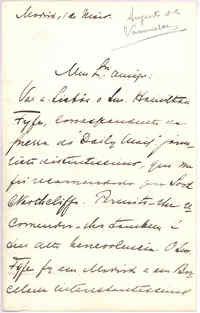 Madrid, 1 de Maio.
Augusto de
Vasconcelos
Meu Exmo amigo:
Vae a Lisboa o Snr. Hamilton
Fyfe, correspondente da
"Daily Mail" jorna
lista distinctissimo, que me
foi recomendado por Lord
Northcliffe. Permitta-me
tambem á
sua alta benevolencia. O Snr.
Fyfe fez em Madrid e em Bar
celona